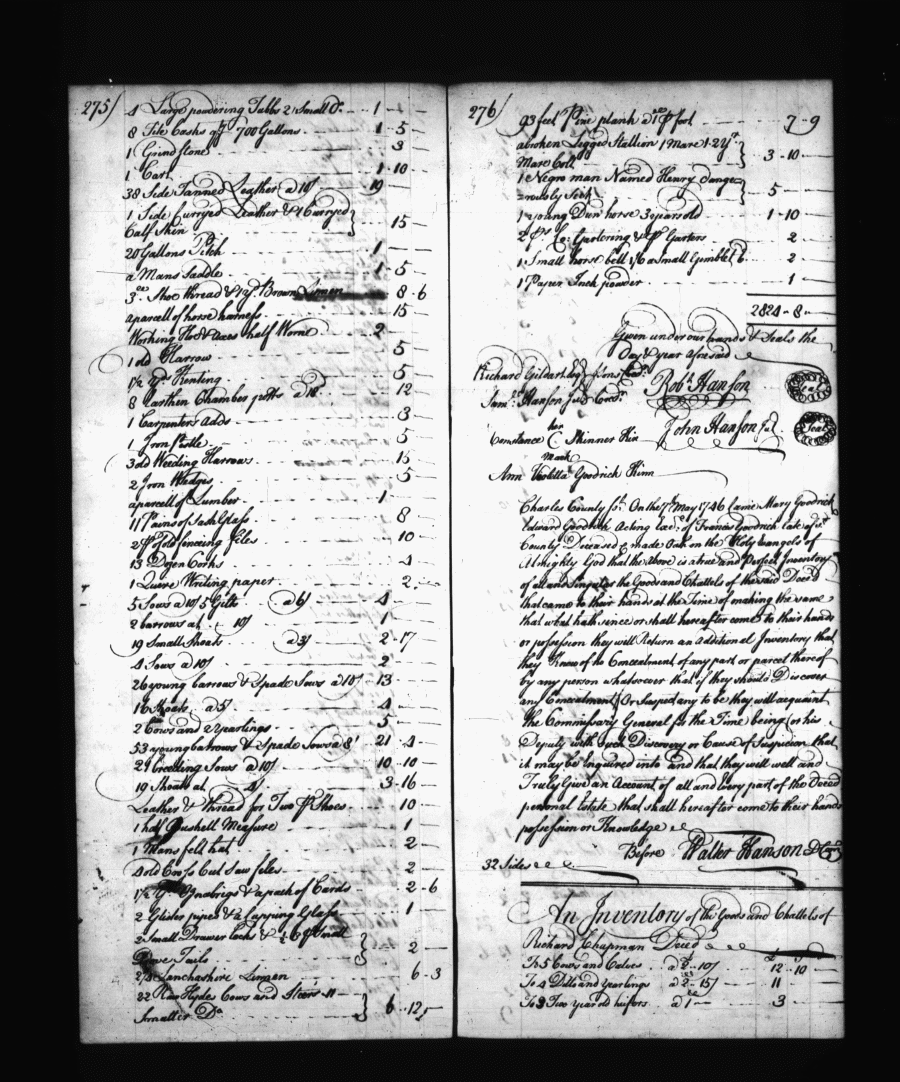 275/
4 Large powdering Tubbs 2 Small Do. 1 " "
8 Tite Casks qty 700 Gallons 1 .. 5
1 Grindstone 3
1 Cart 1 .. 10
38 Side Tanned Leather a 10/ 19
1 Side Curryed Leather & 1 Curryed
Calf Skin 15
20 Gallons Pitch 1
a Mans Saddle 1 5
Shoe thread & Brown Linnen 8 .. 6
a parcell of horse harness 15
Working Hoes & axes half Worne 2
1 old Harrow 5
1 1/2 Yd. Kenting 5
8 Earthen Chamber potts a 18 12
1 Carpenters adds 3
1 Iron Pestle 5
3 old Weeding Harrows 15
2 Iron Wedges 5
a parcell of Lumber 1
11 Pains of Sash Glass 8
2 pr old fencing files 10
13 Dozen Corks 4
1 Quere Writing paper 2
5 Sows a 10/ 5 Gilts a 6/ 4
2 barrows at 10/ 1
19 Small Shoats a 3/ 2 .. 17
4 Sows a 10/ 2
26 young barrows & Spade Sows a 10/ 13
16 Shoats a 5/ 4
2 Cows and 2 yearlings 5
53 young barrows & Spade Sows a 8/ 21 .. 4
21 breeding Sows a 10/ 10 .. 10
19 Shoats at 4/ 3 .. 16
Leather & thread for Two pr Shoes 10
1 half Bushell Measure 1
1 Mans felt hat 2
4 old Cross Cutt Saw files 2
1 1/2 Yd. Oznabrigs & a path of Cards 2 .. 6
2 Glister pipes & 2 Cupping Glass 1
2 Small Drawer locks & 6 pr Small
Dove Tails 2
2 3/4 Lanchashire Linnen 6 .. 3
22 Raw Hydes Cows and Steers 11
Smaller Do 6 .. 12
276/
93 feet Pine plank a 1d p foot 7 .. 9
a broken Legged Stallion 1 Mare & 2 Yr
Mare Colt 3 .. 10
1 Negro man Named Henry dange
rously Sick 5
1 young Dun horse 3 years old 1 .. 10
2 Ps Co: Gartering & pr Garters 2
1 Small horse bell 1/6 a Small Gimblet 6 2
1 Paper Inck powder 1
2824 .. 8
Given under our hands & Seals the
Day & year aforesaid
Richard Gildart Robt. Hanson Seal
Saml. Hanson Junr Credr. John Hanson Jur Seal
her
Constance C Skinner Kin
Mark
Ann Goodrick Kinn
Charles County ss. On the 7th May 1746 Came Mary Goodrick
Edward Goodrick Acting Exec. of Francis Goodrick late of sd
County Deceased & made Oath on the Holy Evangels of
Almighty God that the above is a true and Perfect Inventory
of all and Singular the Goods and Chattels of the said Deced
that came to their hands at the Time of making the same
that what hath since or shall hereafter come to their hands
or possession they will Return an Additional Inventory that
they Know of no Concealment of any part or parcel thereof
by any person whatsoever that if they should Discover
any Concealment Or Suspect any to be they will acquaint
the Commissary General for the Time being or his
Deputy with such Discovery or Cause of Suspicion that
it may be inquired into and that they will well and
Truly Give an Account of all and Every part of the Deced
personal Estate that shall hereafter come to their hands
possession or Knowledge
Before Walter Hanson
32 Sides
An Inventory of the Goods and Chattels of
Richard Chapman Deced
To 5 Cows and Calves a 2 .. 10/ 12 .. 10
To 4 Ditto and Yearlings a 2 .. 15/ 11
To 3 Two Year old heifers a 1 3